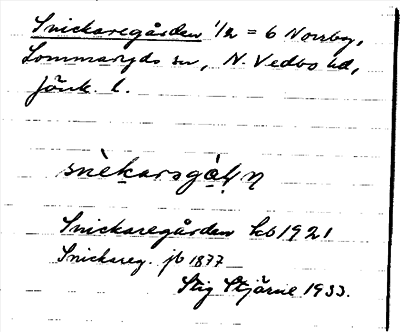 Snickaregården 1/2 = 6 Norrby,
Lommaryds sn, N. Vedbo hd,
Jönk. l.
snèkarsgàḷn
Snickaregården kb 1921
Snickareg. jb 1877
Stig Stjärne 1933.